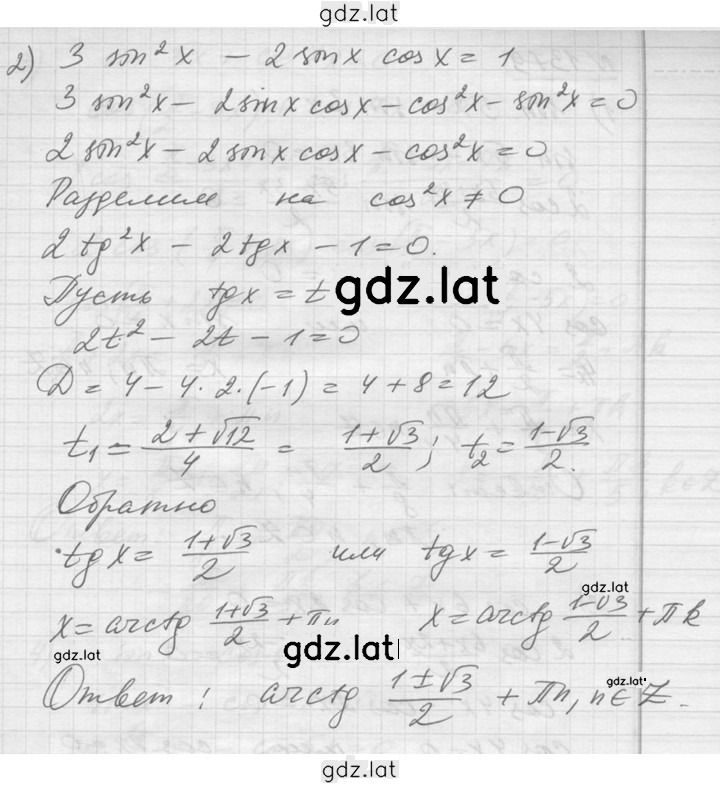 gdz.lat
2) 3 sin²x - 2 sinx cosx = 1
3 sin²x - 2sinx cosx - cos²x - sin²x = 0
2 sin²x - 2 sinx cosx - cos²x = 0
Разделим на cos²x ≠ 0
2 tg²x - 2tgx - 1 = 0.
Пусть tgx = t
gdz.lat
2t² - 2t - 1 = 0
D = 4 - 4 · 2 · (-1) = 4 + 8 = 12
t₁ = (2 + √12)/4 = (1 + √3)/2 ; t₂ = (1 - √3)/2.
Обратно
tgx = (1 + √3)/2 или tgx = (1 - √3)/2
gdz.lat
x = arctg (1 + √3)/2 + πn x = arctg (1 - √3)/2 + πk
gdz.lat gdz.lat
gdz.lat
Ответ : arctg (1 ± √3)/2 + πn, n ∈ Z.
gdz.lat